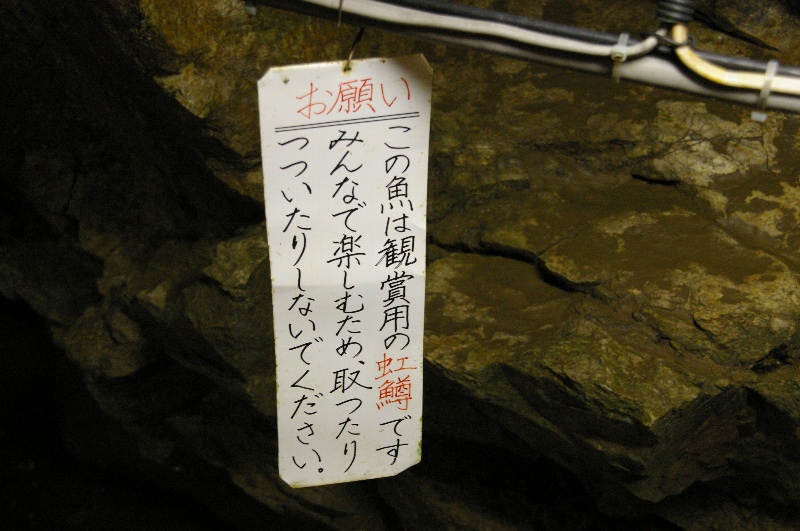 お願い
この魚は観賞用の虹鱒です
みんなで楽しむため、取つたり
つついたりしないでください。